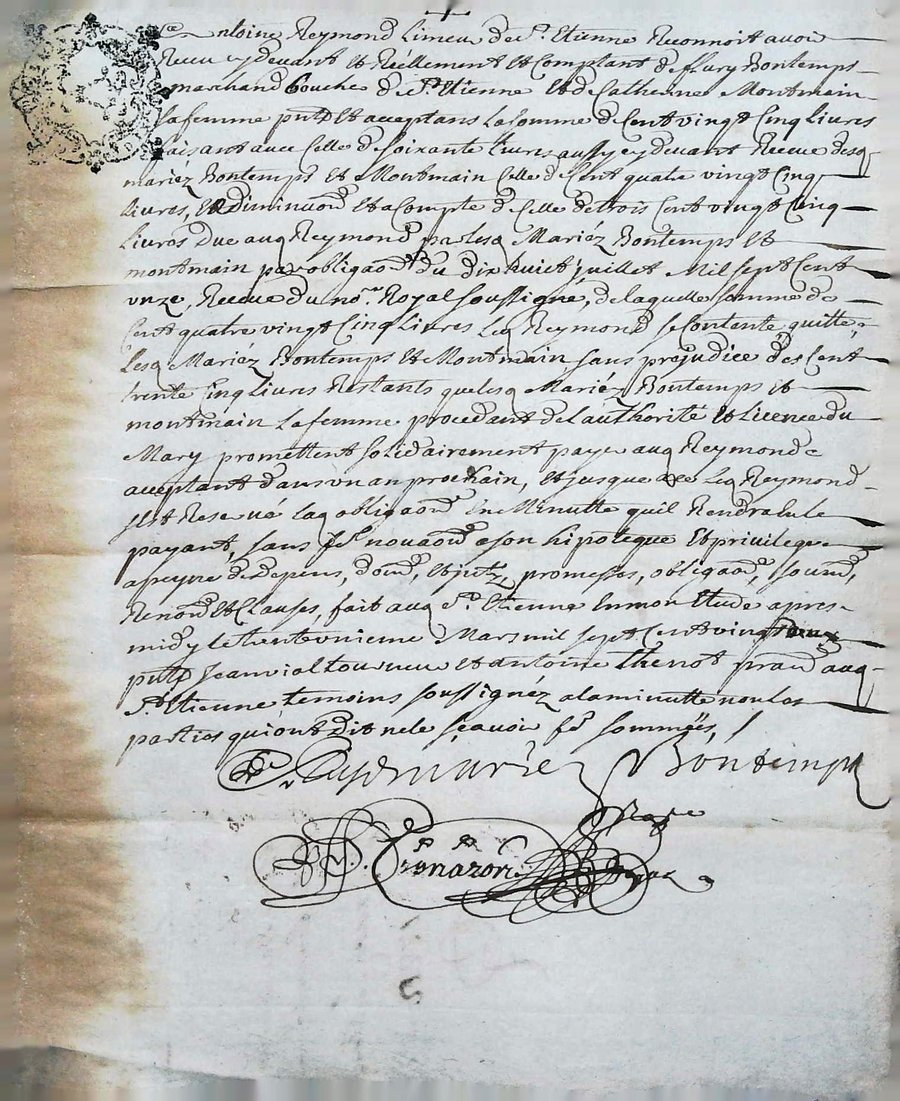 Antoine Reymond Limeur de St. Etienne Reconnoit avoir
Receu cydevant et Réellement et Comptant de fleury Bontemps
marchand boucher de St. Etienne et de Catherine Montmain
sa femme pnts et acceptans la somme de Cent vingt Cinq Livres
faisant avec Celle de soixante Livres aussy cydevant Receue desq
mariez Bontemps et Montmain Celle de Cent quatre vingt Cinq
Livres, et diminuon et a Compte de Celle de trois Cent vingt Cinq
Livres Due auq Reymond par lesq Mariéz Bontemps et
montmain par obligaon du dix huiet juillet Mil sept Cent
unze, Receue du nore. Royal soussigné, de laquelle somme de
Cent quatre vingt Cinq Livres Leq Reymond se Contente quitte
Lesq Mariéz Bontemps et Montmain sans prejudice des Cent
trente Cinq Livres Restants que lesq Mariéz Bontemps et
montmain La femme procedant de l'authorité et Licence du
Mary promettent solidairement payer auq Reymond
acceptant dans un an prochain, et jusque Leq Reymond
s'est Reservé laq obligaon en Minutte quil Rendra le
payant, sans novaon a son hipoteque et privilege
a peyne de depens, dom, et intz, promesses, obligaon, soum,
Renon et Clauses, fait auq St. Etienne en mon Etude apres
midy le trente unieme Mars mil sept Cent vingt deux
pnts Jean vial tourneur et antoine Thenot auq
St. Etienne temoins soussignéz a la minutte non les
parties qui ont dit ne le sçavoir sommées,
mariez Bontemps
Tronazon